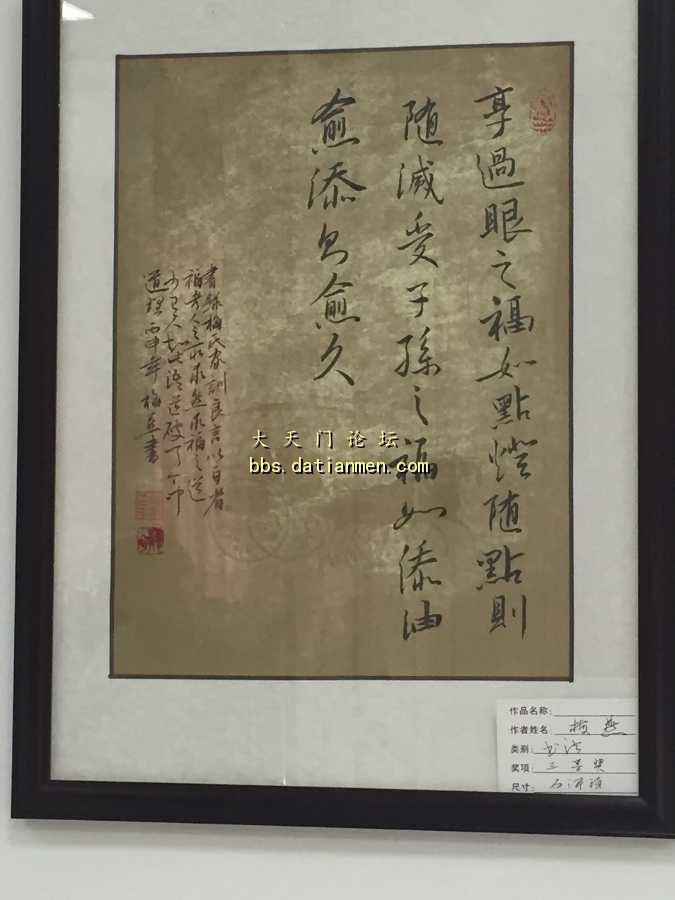 享過眼之福如點燈随點則
随滅受子孫之福如添油
愈添愈久
書錄梅氏家訓良言以自省
福者人之所求然求福之道
少有人知此語道破了个中
道理 丙申年 梅燕書
大天门论坛
bbs.datianmen.com
作品名称:
作者姓名: 梅燕
类别: 书法
奖项: 三等奖
尺寸: 石河镇